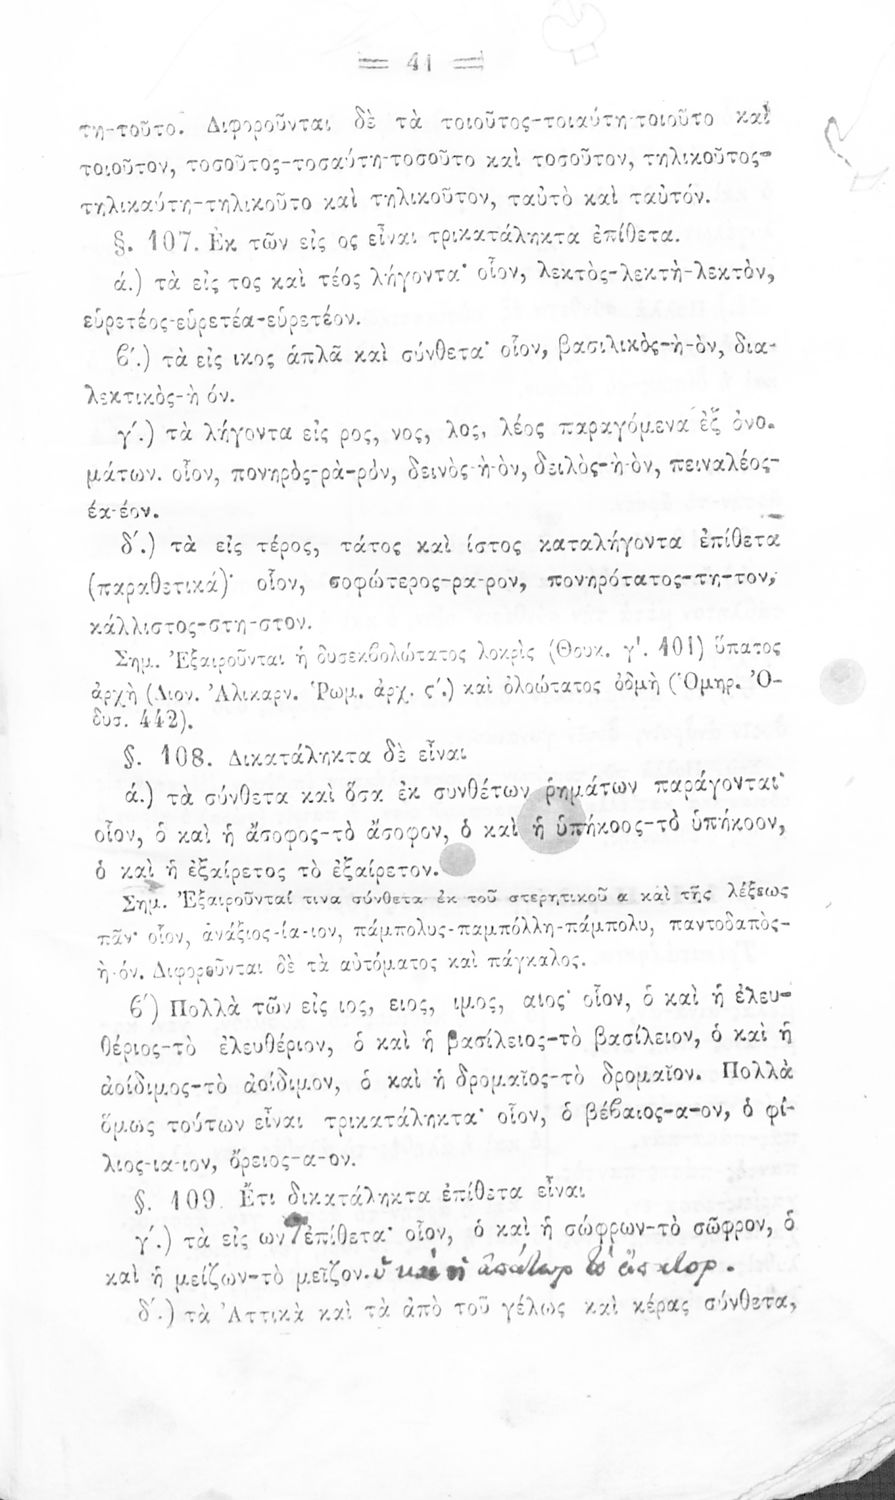 = 41 =
τη-τοῦτο. Διφοροῦνται δὲ τὰ τοιοῦτος-τοιαύτη-τοιοῦτο καὶ
τοιοῦτον, τοσοῦτος-τοσαύτη-τοσοῦτο καὶ τοσοῦτον, τηλικοῦτος-
τηλικαύτη-τηλικοῦτο καὶ τηλικοῦτον, ταὐτὸ καὶ ταὐτόν.
§. 107. Ἐκ τῶν εἰς ος εἶναι τρικατάληκτα ἐπίθετα.
ά.) τὰ εἰς τος καὶ τέος λήγοντα· οἷον, λεκτὸς-λεκτὴ-λεκτὸν,
εὑρετέος-εὑρετέα-εὑρετέον.
β'.) τὰ εἰς ικος ἁπλᾶ καὶ σύνθετα· οἷον, βασιλικὸς-ὴ-ὸν, δια-
λεκτικὸς-ὴ όν.
γ'.) τὰ λήγοντα εἰς ρος, νος, λος, λέος παραγόμενα ἐξ ὀνο-
μάτων. οἷον, πονηρὸς-ρὰ-ρὸν, δεινὸς-ὴ-ὸν, δειλὸς-ὴ-ὸν, πειναλέος-
έα-έον.
δ'.) τὰ εἰς τέρος, τάτος καὶ ίστος καταλήγοντα ἐπίθετα
(παραθετικά)· οἷον, σοφώτερος-ρα-ρον, πονηρότατος-τη-τον,
κάλλιστος-στη-στον.
Σημ. Ἐξαιροῦνται ἡ δυσεκβολώτατος λοκρὶς (Θουκ. γ'. 101) ὕπατος
ἀρχὴ (Διον. Ἀλικαρν. Ῥωμ. ἀρχ. ς'.) καὶ ὀλοώτατος ὀδμὴ (Ὁμηρ. Ὀ-
δυσ. 442).
§. 108. Δικατάληκτα δὲ εἶναι
ά.) τὰ σύνθετα καὶ ὅσα ἐκ συνθέτων ῥημάτων παράγονται·
οἷον, ὁ καὶ ἡ ἄσοφος-τὸ ἄσοφον, ὁ καὶ ἡ ὑπήκοος-τὸ ὑπήκοον,
ὁ καὶ ἡ ἐξαίρετος τὸ ἐξαίρετον.
Σημ. Ἐξαιροῦνταί τινα σύνθετα ἐκ τοῦ στερητικοῦ α καὶ τῆς λέξεως
πᾶν· οἷον, ἀνάξιος-ία-ιον, πάμπολυς-παμπόλλη-πάμπολυ, παντοδαπὸς-
ὴ-όν. Διφοροῦνται δὲ τὰ αὐτόματος καὶ πάγκαλος.
β') Πολλὰ τῶν εἰς ιος, ειος, ιμος, αιος· οἷον, ὁ καὶ ἡ ἐλευ-
θέριος-τὸ ἐλευθέριον, ὁ καὶ ἡ βασίλειος-τὸ βασίλειον, ὁ καὶ ἡ
ἀοίδιμος-τὸ ἀοίδιμον, ὁ καὶ ἡ δρομαῖος-τὸ δρομαῖον. Πολλὰ
ὅμως τούτων εἶναι τρικατάληκτα· οἷον, ὁ βέβαιος-α-ον, ὁ φί-
λιος-ια-ιον, ὄρειος-α-ον.
§. 109. Ἔτι δικατάληκτα ἐπίθετα εἶναι
γ'.) τὰ εἰς ων ἐπίθετα· οἷον, ὁ καὶ ἡ σώφρων-τὸ σῶφρον, ὁ
καὶ ἡ μείζων-τὸ μεῖζον. ὁ καὶ ἡ
δ'.) τὰ Ἀττικὰ καὶ τὰ ἀπὸ τοῦ γέλως καὶ κέρας σύνθετα,